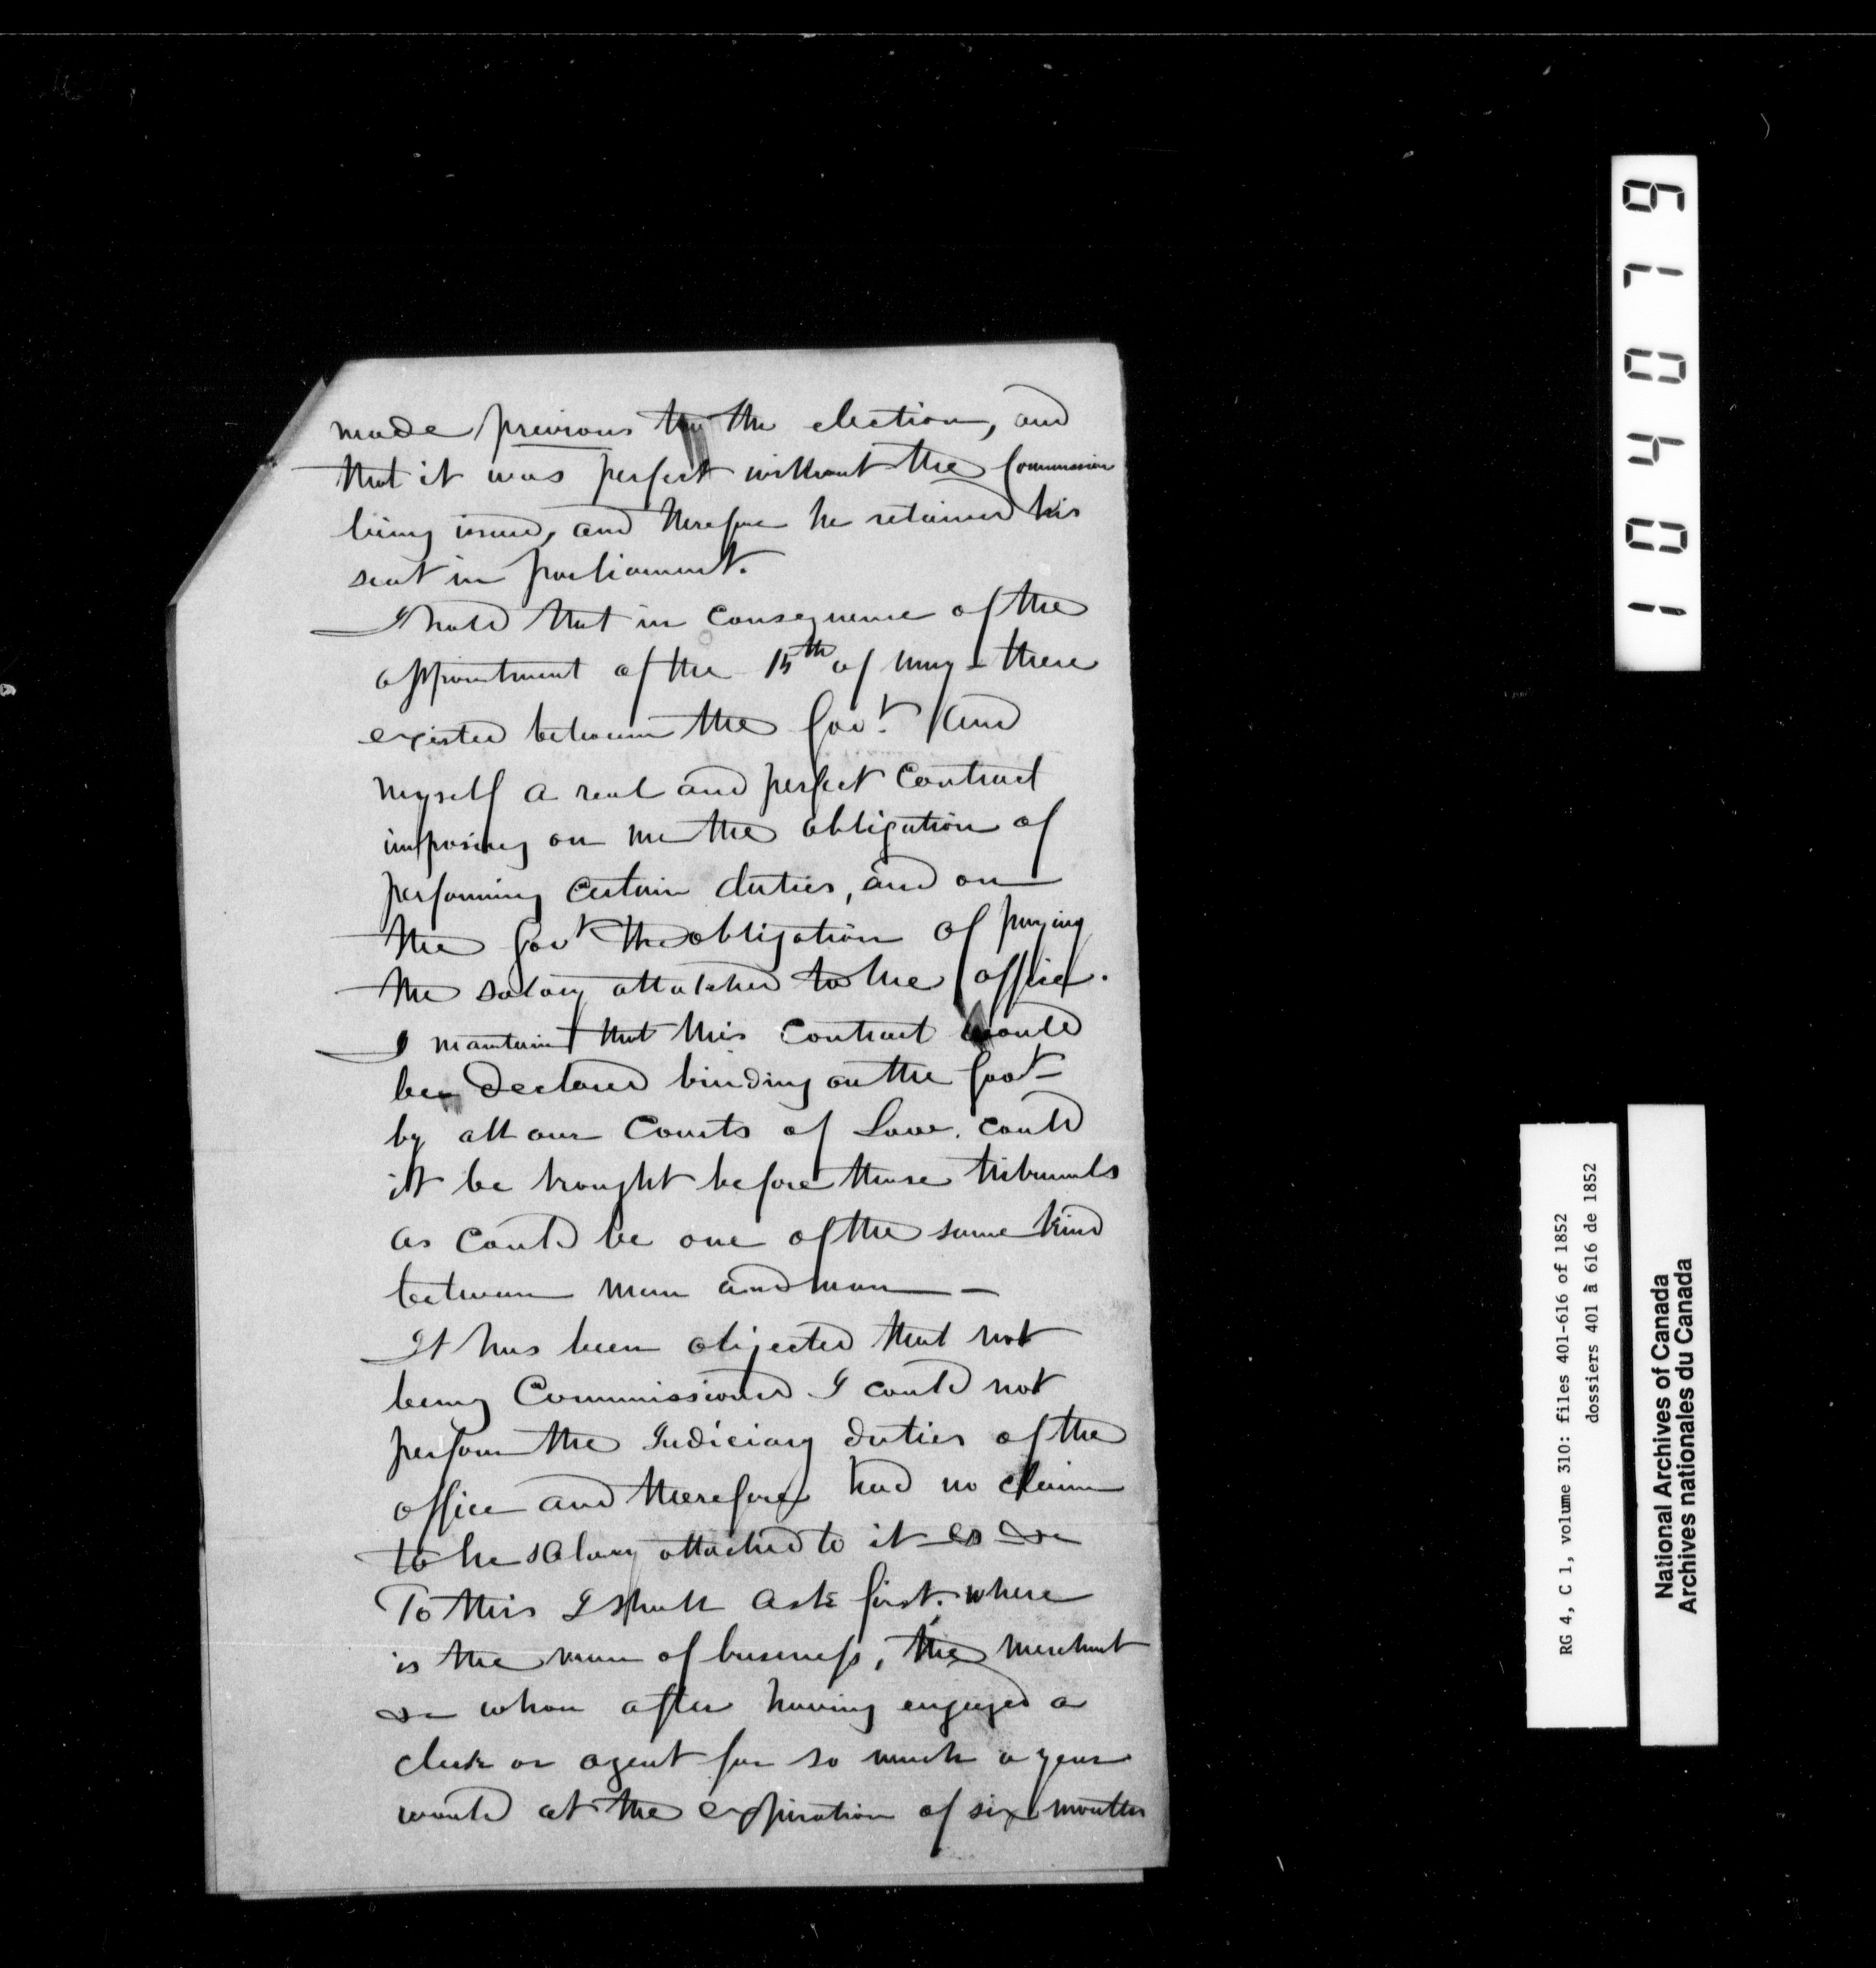 made previous to the election, and
that it was perfect without the Commission
being issued, and therefore he retained his
seat in parliament.
I hold that in consequence of the
appointment of the 15th of May - there
existed between the Govt. and
myself a real and perfect contract
imposing on me the obligation of
performing certain duties, and on
the Govt the obligation of paying
the salary attatched to the office.
I maintain that this contract would
be declared binding on the Govt
by all our Courts of Law. could
it be brought before those tribunals
as could be one of the same kind
between man and man —
It has been objected that not
being Commissioned I could not
perform the Judiciary duties of the
office and therefore had no claim
to he salary attached to it
To this I shall ask first. where
is the man of business, the merchant
&c whom after having engaged a
clerk or agent for so much a year
would at the expiration of six months
1 0 4 0 7 9
RG 4, C 1, volume 310: files 401-616 of 1852
dossiers 401 à 616 de 1852
National Archives of Canada
Archives nationales du Canada